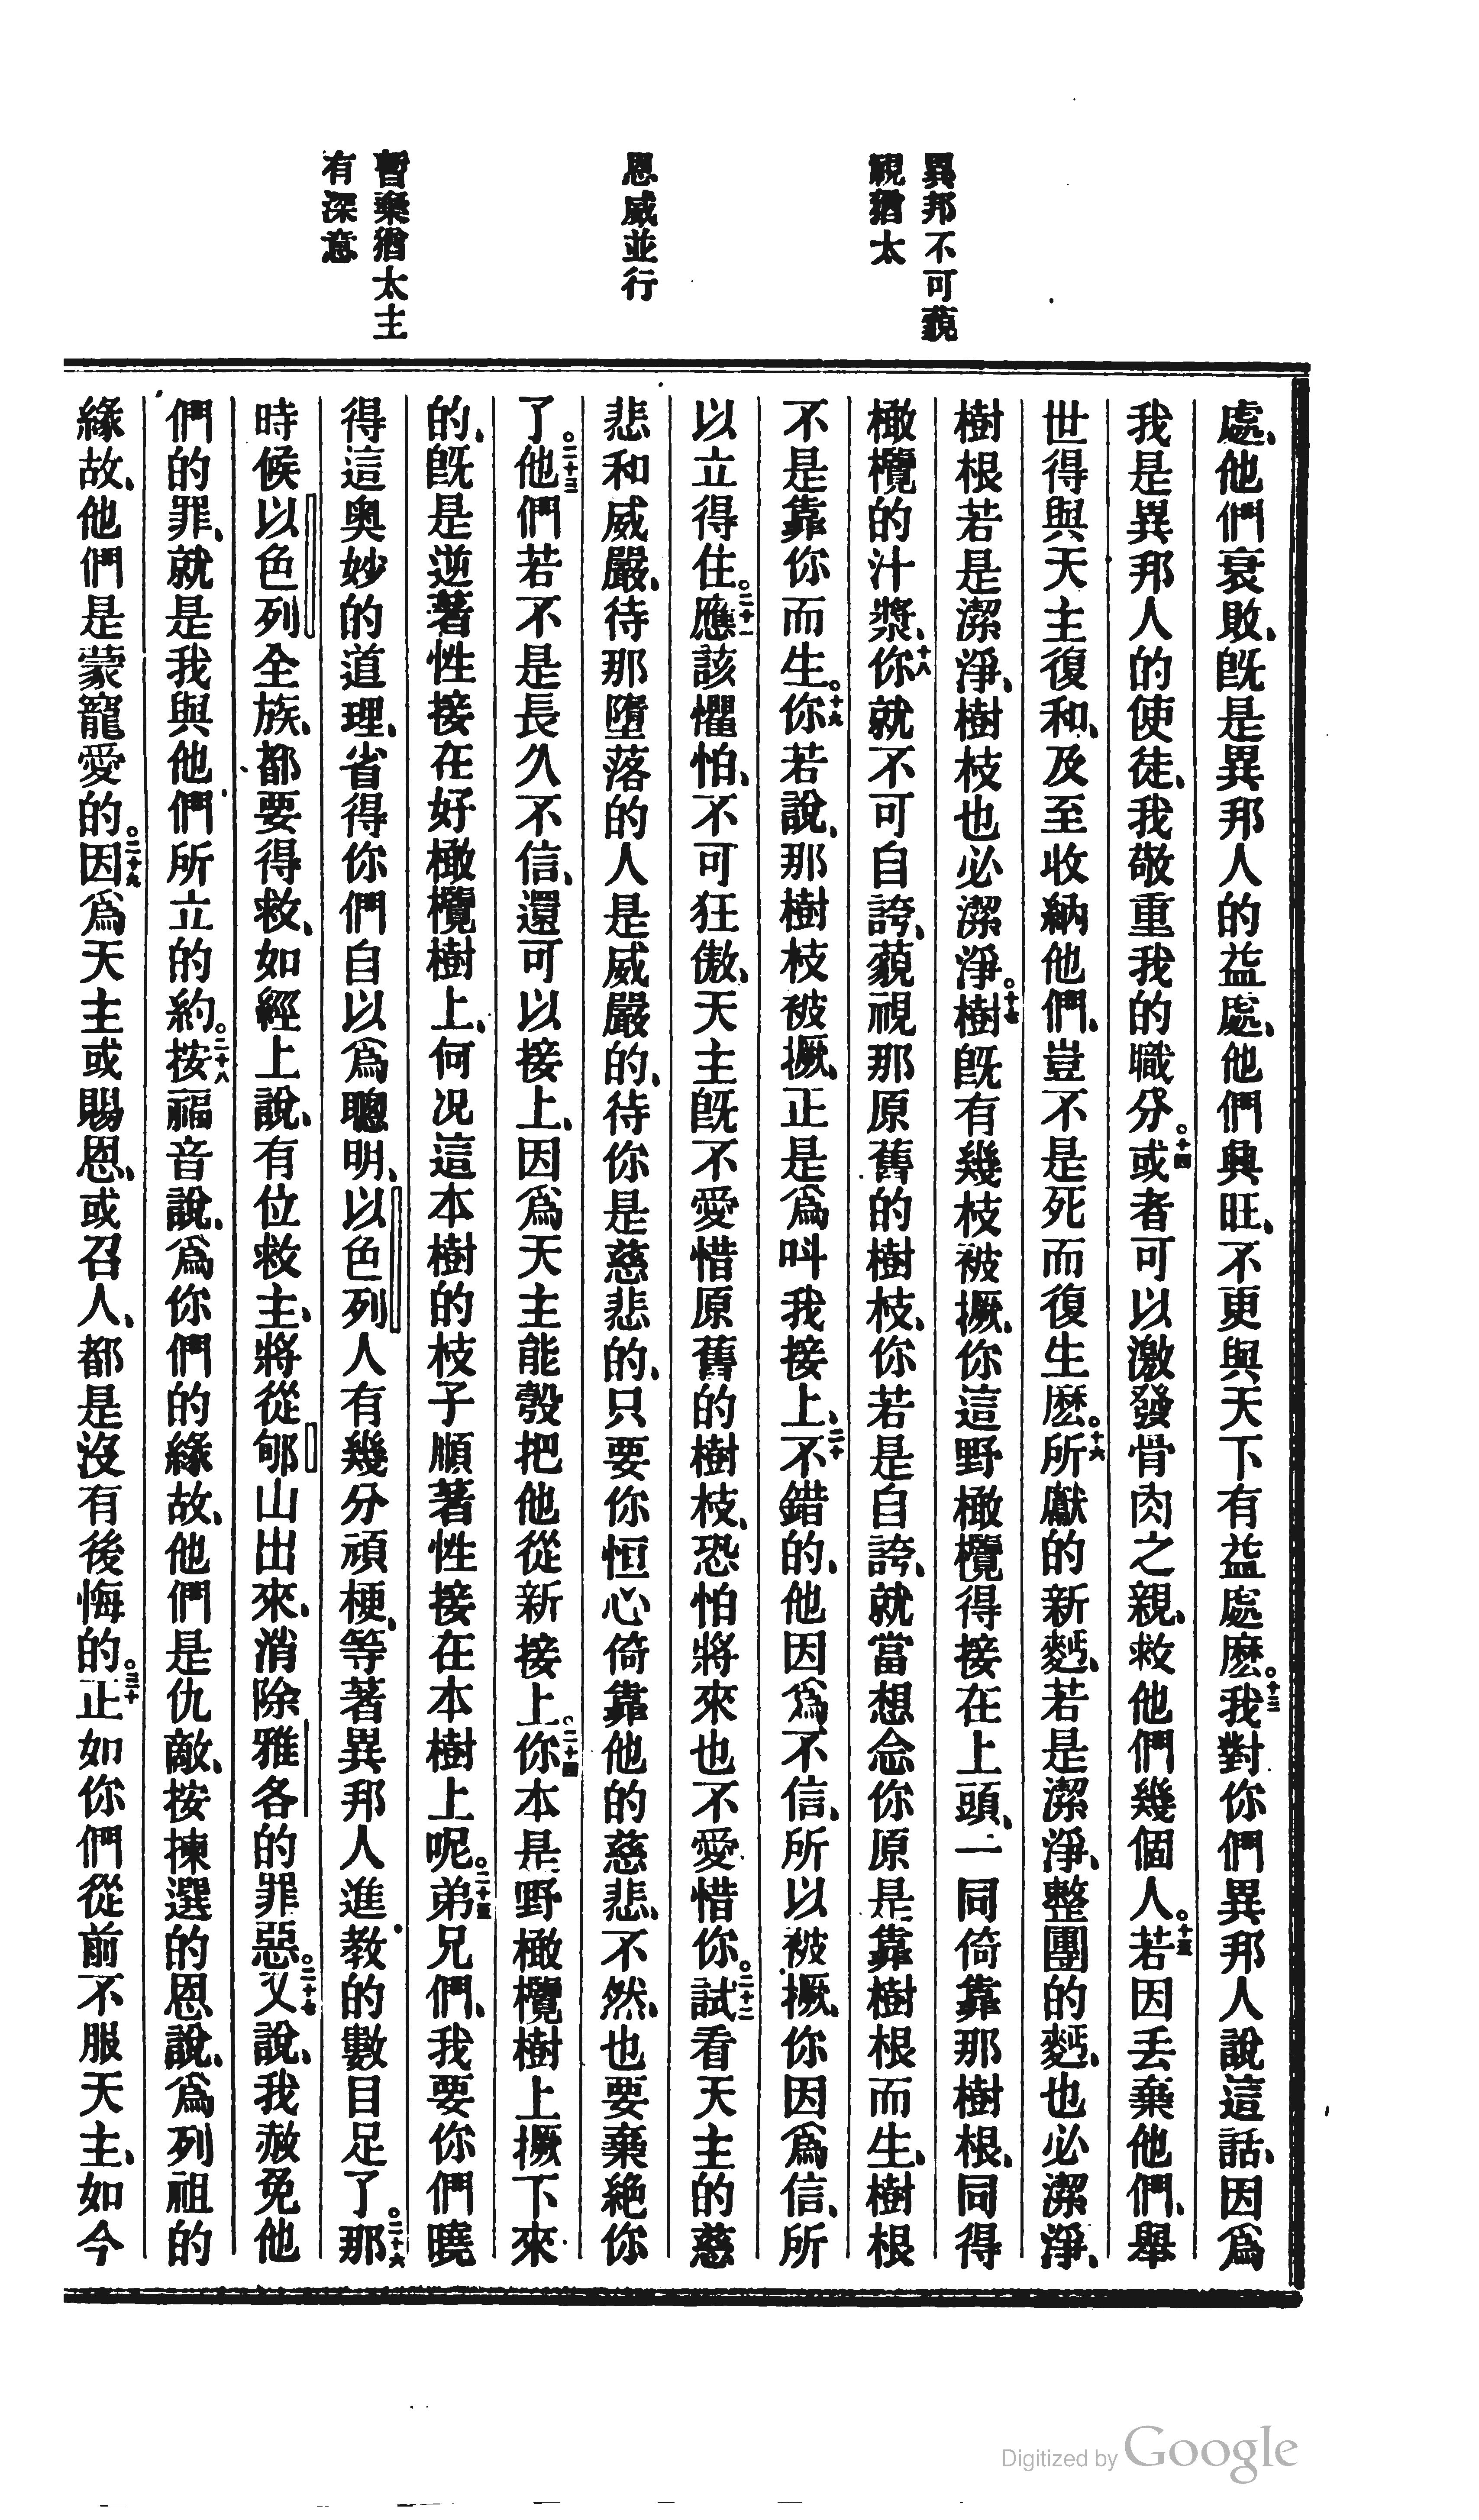 異邦不可藐
視猶太
恩威並行
暫棄猶太主
有深意
處、他們衰敗、旣是異邦人的益處、他們興旺、不更與天下有益處麽。十三我對你們異邦人說這話、因爲
我是異邦人的使徒、我敬重我的職分。十四或者可以激發骨肉之親、救他們幾個人。十五若因丢棄他們、舉
世得與天主復和、及至收納他們、豈不是死而復生麽。十六所獻的新麪、若是潔淨、整團的麪、也必潔淨、
樹根若是潔淨、樹枝也必潔淨。十七樹旣有幾枝被撅、你這野橄欖得接在上頭、一同倚靠那樹根、同得
橄欖的汁漿、十八你就不可自誇、藐視那原舊的樹枝、你若是自誇、就當想念你原是靠樹根而生、樹根
不是靠你而生。十九你若說、那樹枝被撅、正是爲呌我接上、二十不錯的、他因爲不信、所以被撅、你因爲信、所
以立得住。二十一應該懼怕、不可狂傲、天主旣不愛惜原舊的樹枝、恐怕將來也不愛惜你。二十二試看天主的慈
悲和威嚴、待那墮落的人是威嚴的、待你是慈悲的、只要你恒心倚靠他的慈悲、不然、也要棄絶你
了。二十三他們若不是長久不信、還可以接上、因爲天主能彀把他從新接上。二十四你本是野橄欖樹上撅下來
的、旣是逆著性接在好橄欖樹上、何况這本樹的枝子順著性接在本樹上呢。二十五弟兄們、我要你們曉
得這奥妙的道理、省得你們自以爲聰明、以色列人有幾分頑梗、等著異邦人進教的數目足了。二十六那
時候以色列全族、都要得救、如經上說、有位救主、將從郇山出來、消除雅各的罪惡。二十七又說、我赦免他
們的罪、就是我與他們所立的約。二十八按福音說、爲你們的緣故、他們是仇敵、按揀選的恩說、爲列祖的
緣故、他們是蒙寵愛的。二十九因爲天主或賜恩、或召人、都是沒有後悔的。三十正如你們從前不服天主、如今
Digitized by Google